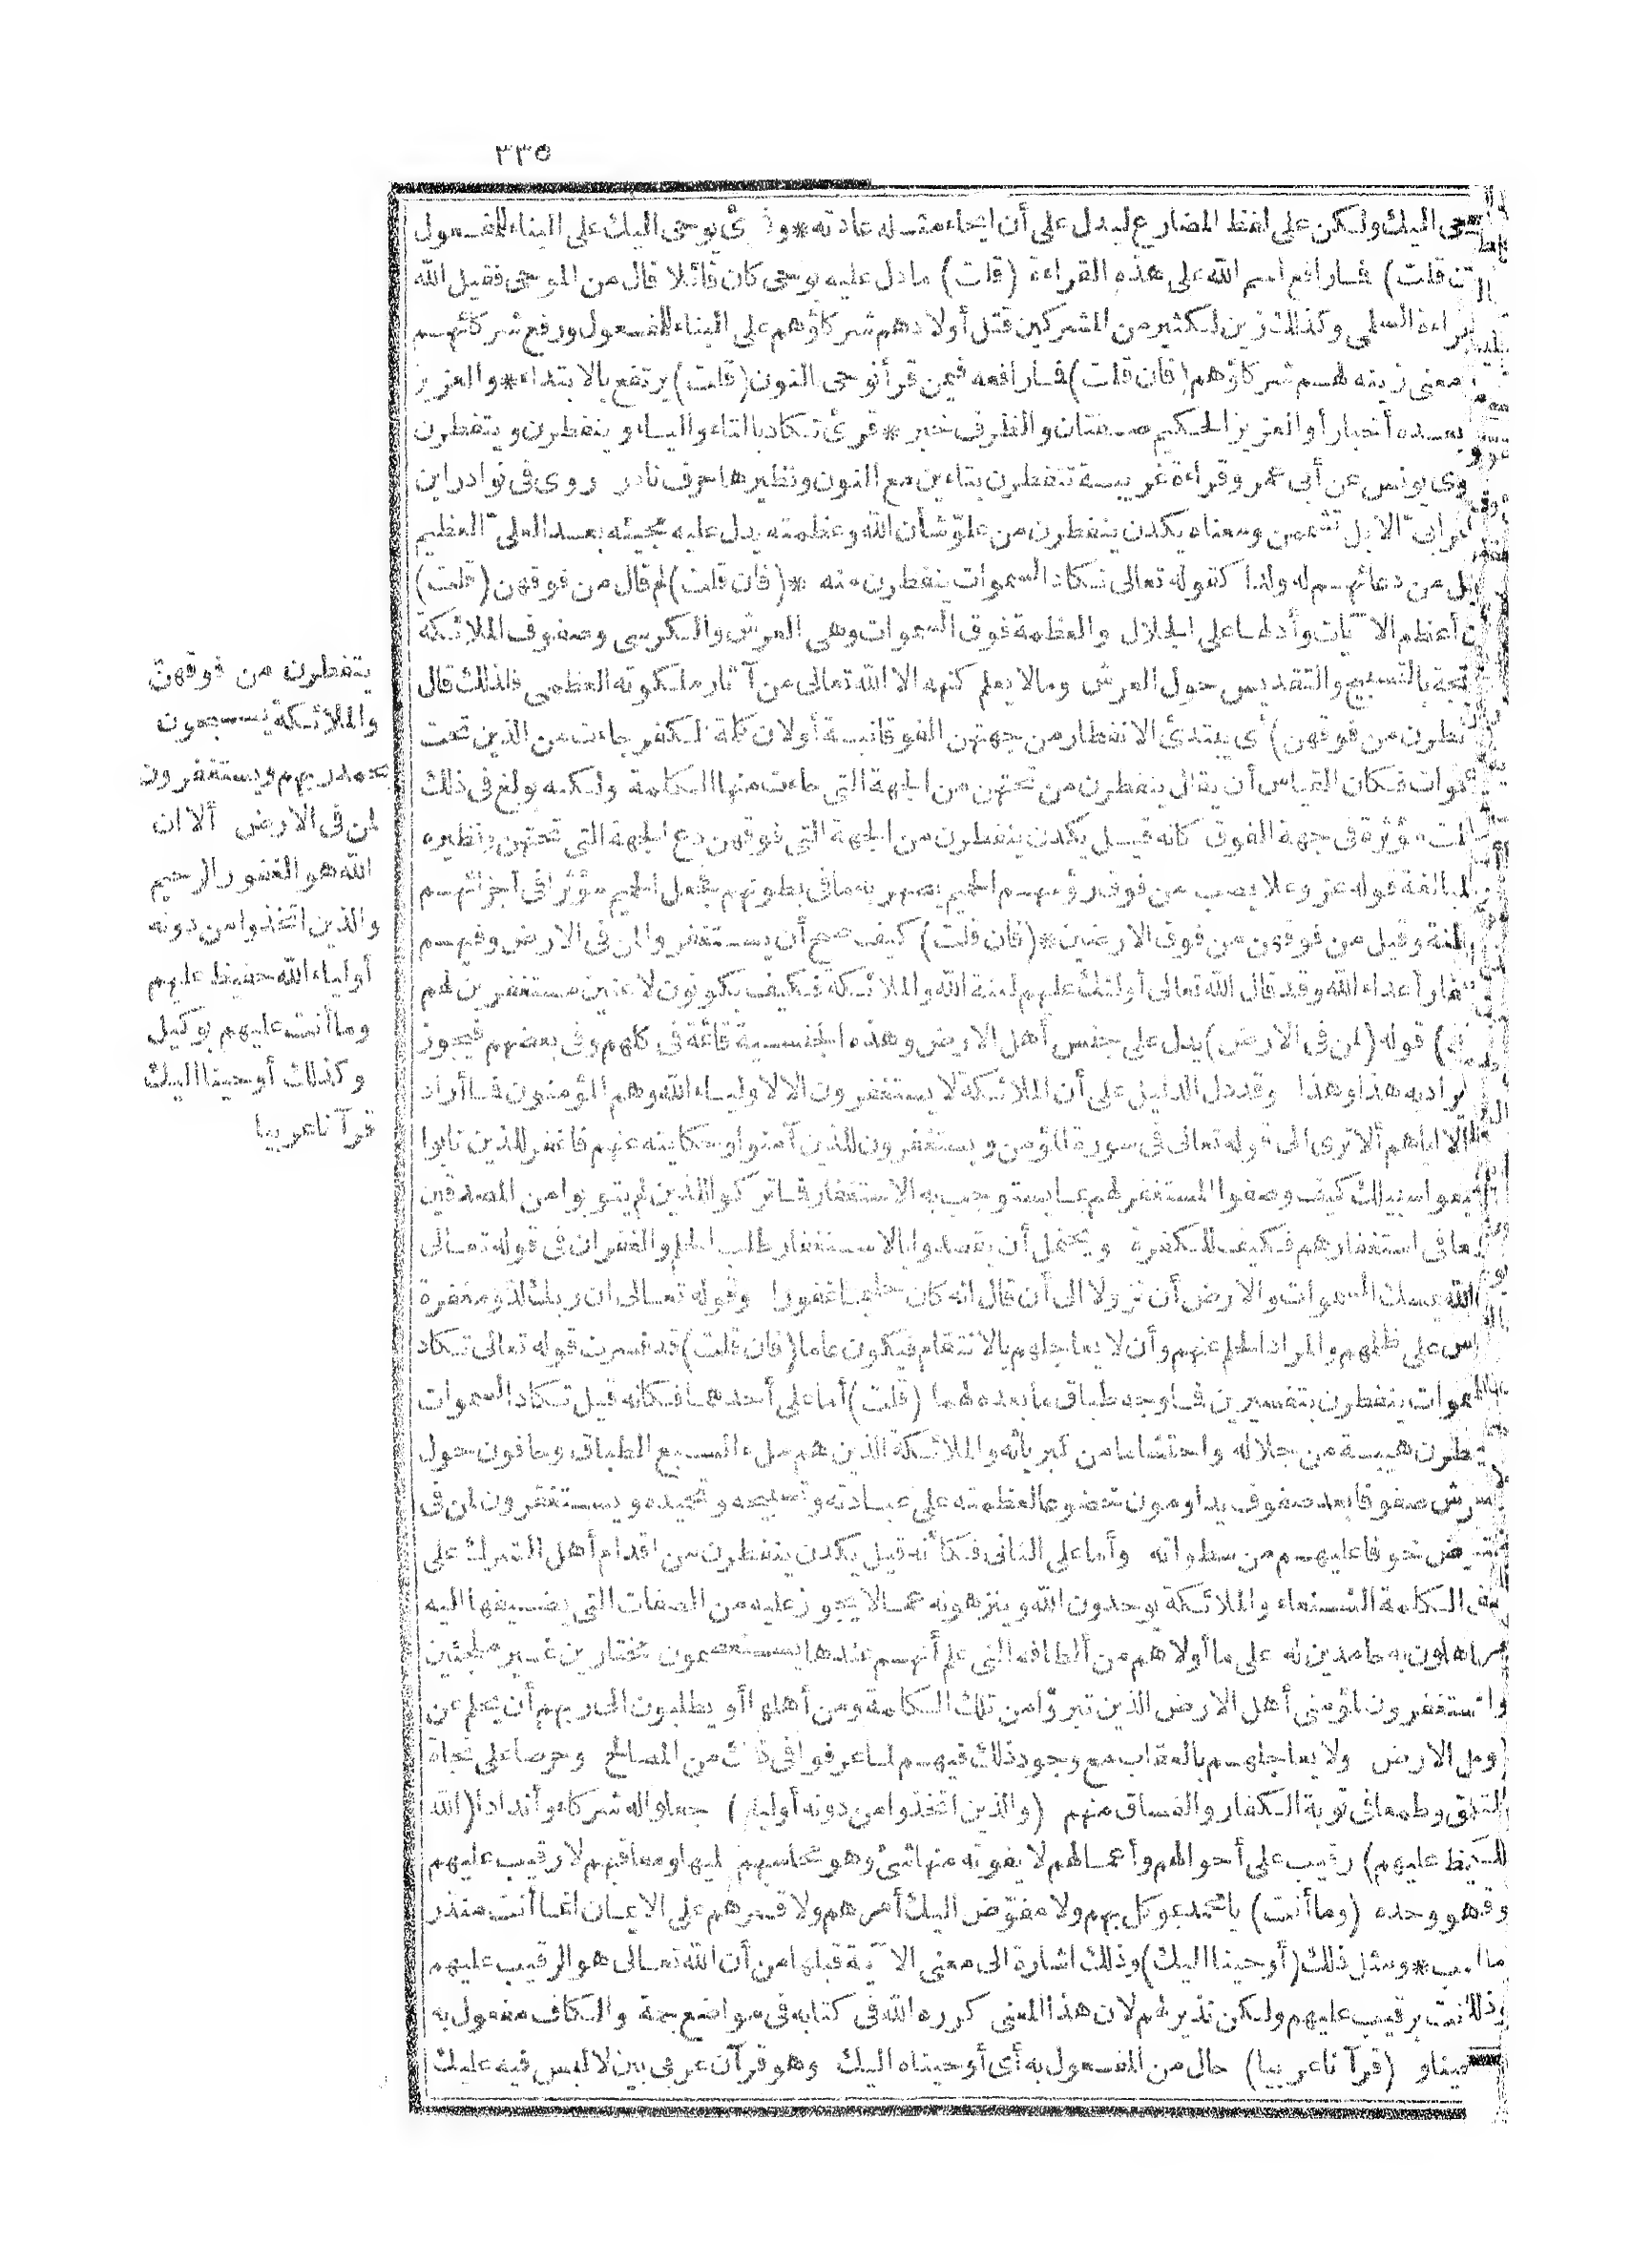 ٣٣٥
اليك ولكن على لفظ المضارع ليدل على أن ايحاء مثله عادته * وقرئ يوحى اليك على البناء للمفعول
قلت) فما رافع اسم الله على هذه القراءة (قلت) ما دل عليه يوحى كان قائلا قال من الموحى فقيل الله
السلمى وكذلك زين لكثير من المشركين قتل أولادهم شركاؤهم على البناء للمفعول ورفع شركائهم
معنى زينه لهم شركاؤهم (فان قلت) فما رافعه فيمن قرأ نوحى بالنون (قلت) يرتفع بالابتداء * والعزيز
بعده أخبار أو العزيز الحكيم صفتان والظرف خبر * قرئ تكاد بالتاء والياء و ينفطرن و يتفطرن
يونس عن أبى عمرو قراءة غريبة تتفطرن بتاءين مع النون ونظيرها حرف نادر روى فى نوادر ابن
الابل تشممن ومعناه يكدن ينفطرن من علوّ شأن الله وعظمته يدل عليه مجيئه بعد العلىّ العظيم
من دعائهم له ولدا كقوله تعالى تكاد السموات يتفطرن منه * (فان قلت) لم قال من فوقهن (قلت)
أعظم الآيات وأدلها على الجلال والعظمة فوق السموات وهى العرش والكرسى وصفوف الملائكة
بالتسبيح والتقديس حول العرش وما لا يعلم كنهه الا الله تعالى من آثار ملكوته العظمى فلذلك قال
من فوقهن) أى يبتدئ الانفطار من جهتهن الفوقانية أو لان كلمة الكفر جاءت من الذين تحت
فكان القياس أن يقال ينفطرن من تحتهن من الجهة التى جاءت منها الكلمة ولكنه بولغ فى ذلك
مؤثرة فى جهة الفوق كأنه قيل يكدن ينفطرن من الجهة التى فوقهن دع الجهة التى تحتهن ونظيره
المبالغة قوله عز وعلا يصب من فوق رؤسهم الحميم يصهر به ما فى بطونهم فجعل الحميم مؤثرا فى أجزائهم
وقيل من فوقهن من فوق الارضين * (فان قلت) كيف صح أن يستغفروا لمن فى الارض وفيهم
أعداء الله وقد قال الله تعالى أولئك عليهم لعنة الله والملائكة فكيف يكونون لاعنين مستغفرين لهم
قوله (لمن فى الارض) يدل على جنس أهل الارض وهذه الجنسية قائمة فى كلهم وفى بعضهم فيجوز
يراد به هذا وهذا وقد دل الدليل على أن الملائكة لا يستغفرون الا لاولياء الله وهم المؤمنون فما أراد
الا اياهم ألا ترى الى قوله تعالى فى سورة المؤمن و يستغفرون للذين آمنوا وحكايته عنهم فاغفر للذين تابوا
سبيلك كيف وصفوا المستغفر لهم بما يستوجب به الاستغفار فما تركوا الذين لم يتوبوا من المصدقين
فى استغفارهم فكيف للكفرة و يحتمل أن يقصدوا بالاستغفار طلب الحلم والغفران فى قوله تعالى
الله يمسك السموات والارض أن تزولا الى أن قال انه كان حليما غفورا وقوله تعالى ان ربك لذو مغفرة
على ظلمهم والمراد الحلم عنهم وأن لا يعاجلهم بالانتقام فيكون عاما (فان قلت) قد فسرت قوله تعالى تكاد
ينفطرن بتفسيرين فما وجه طباق ما بعده لهما (قلت) أما على أحدهما فكأنه قيل تكاد السموات
هيبة من جلاله واحتشاما من كبريائه والملائكة الذين هم ملء السبع الطباق وحافون حول
صفوفا بعد صفوف يداومون خضوعا لعظمته على عبادته وتسبيحه وتحميده و يستغفرون لمن فى
خوفا عليهم من سطواته وأما على الثانى فكأنه قيل يكدن ينفطرن من اقدام أهل الشرك على
الكلمة الشنعاء والملائكة يوحدون الله و ينزهونه عما لا يجوز عليه من الصفات التى يضيفها اليه
به حامدين له على ما أولاهم من ألطافه التى علم أنهم عندها يستعصمون مختارين غير ملجئين
لمؤمنى أهل الارض الذين تبرؤا من تلك الكلمة ومن أهلها أو يطلبون الى ربهم أن يحلم عن
الارض ولا يعاجلهم بالعقاب مع وجود ذلك فيهم لما عرفوا فى ذلك من المصالح وحرصا على نجاة
وطمعا فى توبة الكفار والفساق منهم (والذين اتخذوا من دونه أولياء) جعلوا له شركاء وأندادا (الله
عليهم) رقيب على أحوالهم وأعمالهم لا يفوته منها شئ وهو محاسبهم عليها ومعاقبهم لا رقيب عليهم
هو وحده (وما أنت) يا محمد بموكل بهم ولا مفوّض اليك أمرهم ولا قسرهم على الايمان انما أنت منذر
* ومثل ذلك (أوحينا اليك) وذلك اشارة الى معنى الآية قبلها من أن الله تعالى هو الرقيب عليهم
برقيب عليهم ولكن نذير لهم لان هذا المعنى كرره الله فى كتابه فى مواضع جمة والكاف مفعول به
(قرآنا عربيا) حال من المفعول به أى أوحيناه اليك وهو قرآن عربى بين لا لبس فيه عليك
يتفطرن من فوقهن
والملائكة يسبحون
بحمد ربهم ويستغفرون
لمن فى الارض ألا ان
الله هو الغفور الرحيم
والذين اتخذوا من دونه
أولياء الله حفيظ عليهم
وما أنت عليهم بوكيل
وكذلك أوحينا اليك
قرآنا عربيا